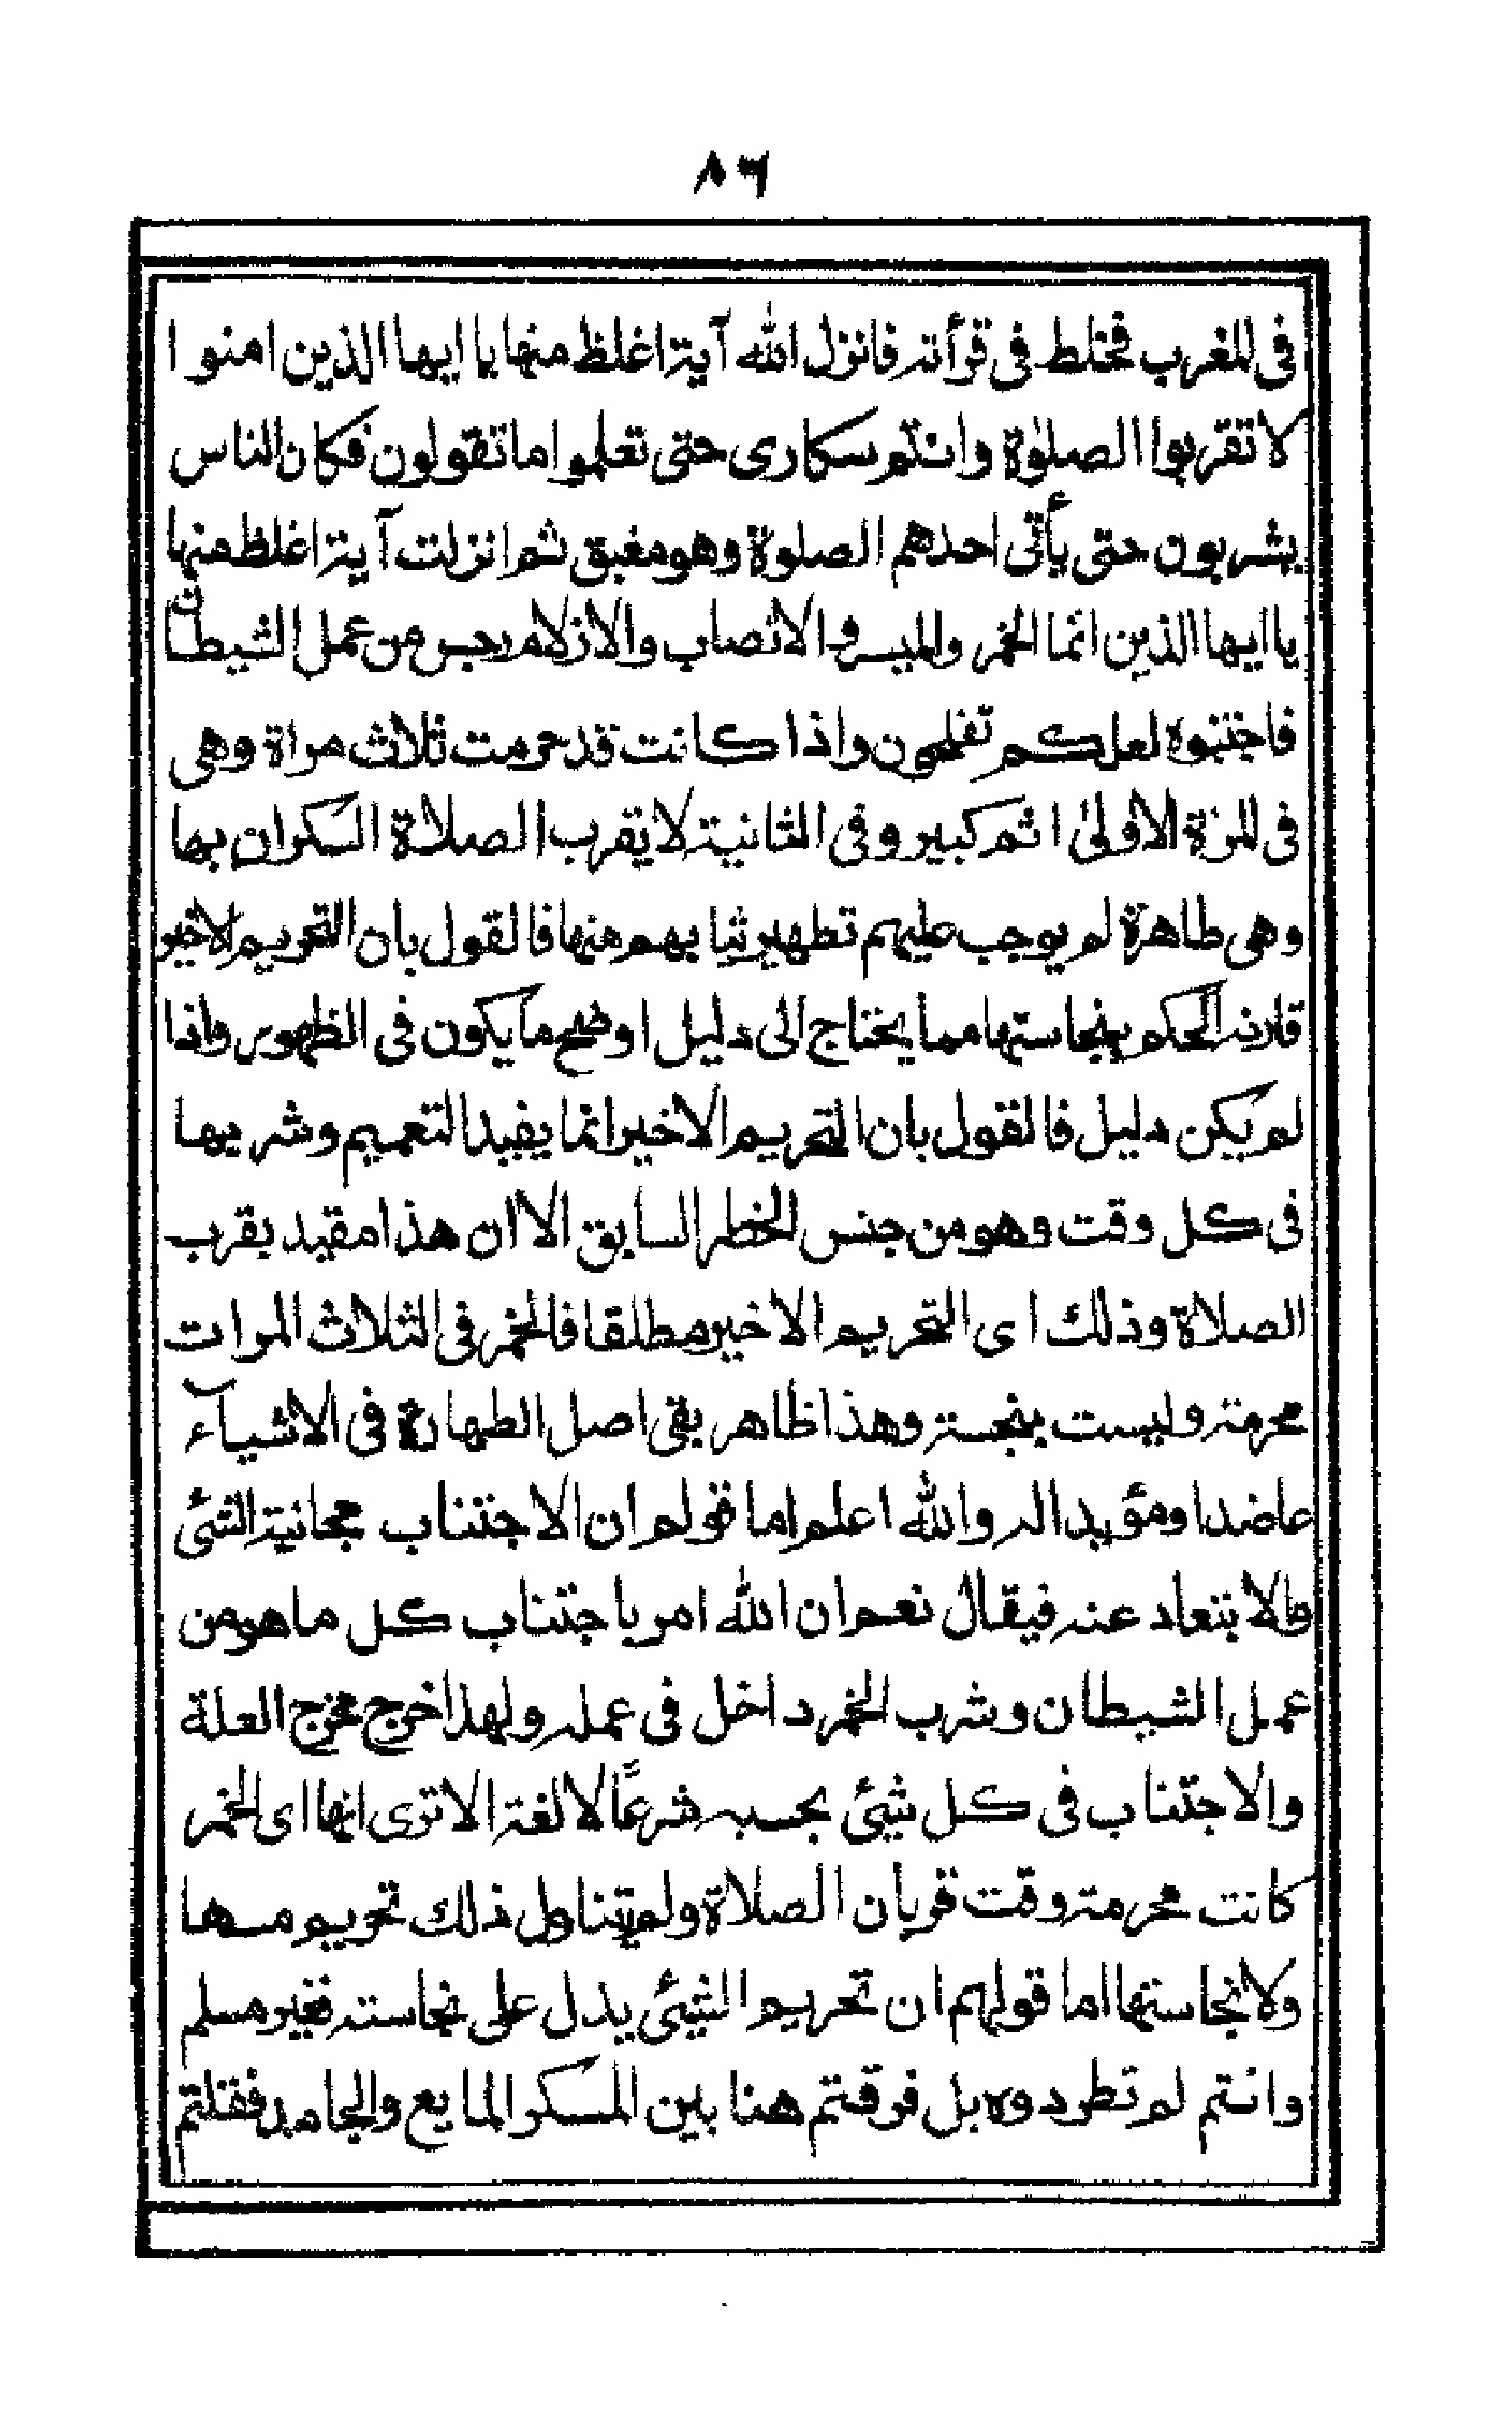 ٨٦
فى المغرب فخلط فى قرأته فانزل الله آية اغلظ منها يا ايها الذين امنوا
لا تقربوا الصلوٰة وانتم سكارى حتى تعلموا ما تقولون فكان الناس
يشربون حتى يأتى احدهم الصلوة وهو مغبق ثم انزلت آية اغلظ منها
يا ايها الذين انما الخمر والميسر والانصاب والازلام رجس من عمل الشيطان
فاجتنبوه لعلكم تفلحون واذا كانت قد حرمت ثلاث مراة وهى
فى المرة الاولىٰ اثم كبير وفى الثانية لا يقرب الصلاة السكران بها
وهى طاهرة لم يوجب عليهم تطهير ثيا بهم منها فالقول بان التحريم الاخير
قارنه الحكم بنجاستها مما يحتاج الى دليل اوضح ما يكون فى الظهور واذا
لم يكن دليل فالقول بان التحريم الاخير انما يفيد التعميم وشربها
فى كل وقت وهو من جنس الخطر السابق الا ان هذا مقيد بقرب
الصلاة وذلك اى التحريم الاخير مطلقا فالخمر فى الثلاث المرات
محرمة وليست بنجسة وهذا ظاهر بقى اصل الطهارة فى الاشيآء
عاضدا ومؤيدا له والله اعلم اما قولهم ان الاجتناب مجانية الشئ
والابتعاد عنه فيقال نعم ان الله امر باجتناب كل ما هو من
عمل الشيطان وشرب الخمر داخل فى عمله ولهذا خرج مخرج العلة
والاجتناب فى كل شيئ بحسبه شرعًا لا لغة الا ترى انها اى الخمر
كانت محرمة وقت قربان الصلاة ولم يتناول ذلك تحريم مسها
ولا نجاستها اما قولهم ان تحريم الشيئ يدل على نجاسته فغير مسلم
وانتم لم تطردوه بل فرقتم هنا بين المسكر المايع والجامد فقلتم